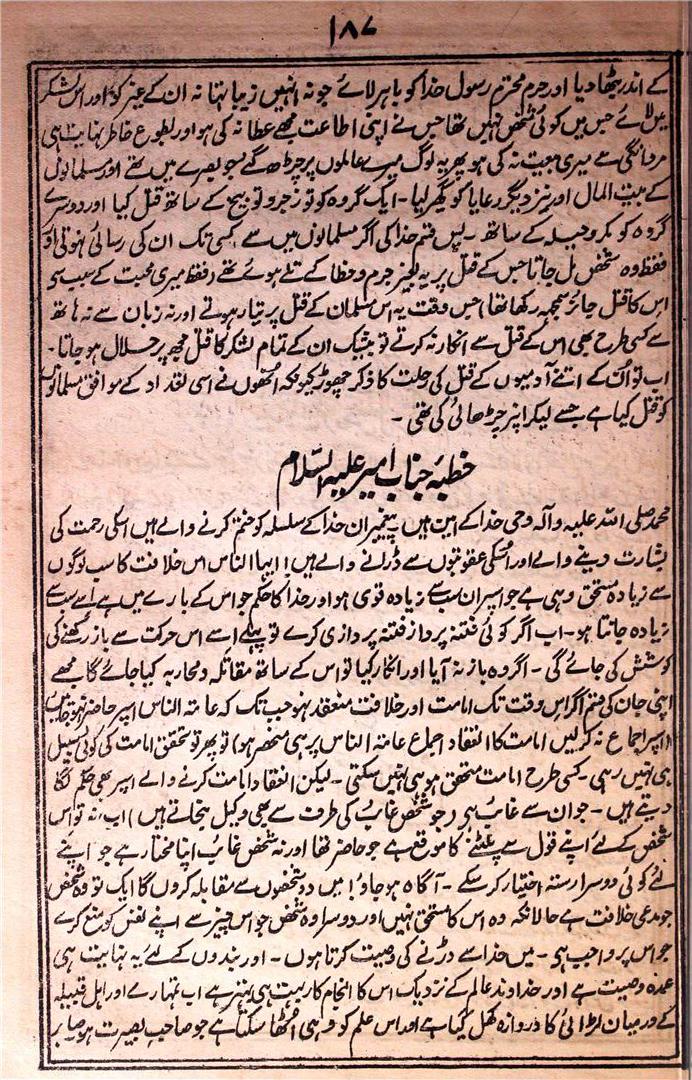 ۱۸۷
کے اندر بٹھا دیا اور حرم محترم رسول خدا کو باہر لائے جو نہ انہیں زیبا تھا نہ ان کے غیر کو اور اس لشکر
میں لائے جس میں کوئی شخص نہیں تھا جس نے اپنی اطاعت مجھے عطا نہ کی ہو اور بطوع خاطر نہایت ہی
مردانگی سے میری بیعت نہ کی ہو پھر یہ لوگ میرے عاملوں پر چڑھ گئے جو بصرے میں تھے اور مسلمانوں
کے بیت المال اور نیز دیگر رعایا کو گھیر لیا۔ ایک گروہ کو تو زجر و توبیخ کے ساتھ قتل کیا اور دوسرے
گروہ کو مکر و حیلہ کے ساتھ۔ پس قسم خدا کی اگر مسلمانوں میں سے کسی تک ان کی رسائی نہ ہوتی اور
فقط وہ شخص مل جاتا جس کے قتل پر یہ بغیر جرم و خطا کے تلے ہوئے تھے (فقط میری محبت کے سبب سے
اس کا قتل جائز سمجھ رکھا تھا) جس وقت یہ اس مسلمان کے قتل پر تیار ہوتے اور نہ زبان سے نہ ہاتھ
سے کسی طرح بھی اس کے قتل سے انکار نہ کرتے تو بیشک ان کے تمام لشکر کا قتل مجھ پر حلال ہو جاتا۔
اب تو ان کے اتنے آدمیوں کے قتل کی حلت کا ذکر چھوڑ کیونکہ انھوں نے اسی تعداد کے موافق مسلمانوں
کو قتل کیا ہے جسے لیکر اپر چڑھائی کی تھی۔
خطبۂ جناب امیر علیہ السّلام
محمد صلی اللہ علیہ و آلہ وحی خدا کے امین ہیں۔ پیغمبران خدا کے سلسلہ کو ختم کرنے والے ہیں اسکی رحمت کی
بشارت دینے والے اور اسکی عقوبتوں سے ڈرانے والے ہیں! ایہا الناس اس خلافت کا سب لوگوں
سے زیادہ مستحق وہی ہے جو اسپر ان سب سے زیادہ قوی ہو اور خدا کا حکم جو اس کے بارے میں ہے اسے سب سے
زیادہ جانتا ہو۔ اب اگر کوئی فتنہ پرداز فتنہ پردازی کرے تو پہلے اسے اس حرکت سے باز رکھنے کی
کوشش کی جائے گی۔ اگر وہ باز نہ آیا اور انکار کیا تو اس کے ساتھ مقاتلہ و محاربہ کیا جائے گا مجھے
اپنی جان کی قسم اگر اس وقت تک امامت اور خلافت منعقد نہو جب تک کہ عامۃ الناس اسپر حاضر نہو جائیں
(اسپر اجماع نہ کر لیں امامت کا انعقاد اجماع عامۃ الناس پر ہی منحصر ہو) تو پھر تو تحقق امامت کی کوئی سبیل
ہی نہیں رہی۔ کسی طرح امامت متحقق ہو ہی نہیں سکتی۔ لیکن انعقاد امامت کرنے والے اسپر بھی حکم لگا
دیتے ہیں۔ جو ان سے غائب ہے (جو شخص غائب کی طرف سے بھی وکیل بنجاتے ہیں) اب نہ تو اس
شخص کے لئے اپنے قول سے پلٹنے کا موقع ہے جو حاضر تھا اور نہ شخص غائب اپنا مختار ہے جو اپنے
لئے کوئی دوسرا رستہ اختیار کر سکے۔ آگاہ ہو جاؤ! میں دو شخصوں سے مقابلہ کروں گا ایک تو وہ شخص
جو مدعی خلافت ہے حالانکہ وہ اس کا مستحق نہیں اور دوسرا وہ شخص جو اس چیز سے اپنے نفس کو منع کرے
جو اس پر واجب ہے۔ میں خدا سے ڈرنے کی وصیت کرتا ہوں۔ اور بندوں کے لئے یہ نہایت ہی
عمدہ وصیت ہے اور خداوند عالم کے نزدیک اس کا انجام کار بہت ہی بہتر ہے اب تمہارے اور اہل قبیلہ
کے درمیان لڑائی کا دروازہ کھل گیا ہے اور اس علم کو وہی اٹھا سکتا ہے جو صاحب بصیرت ہو صابر